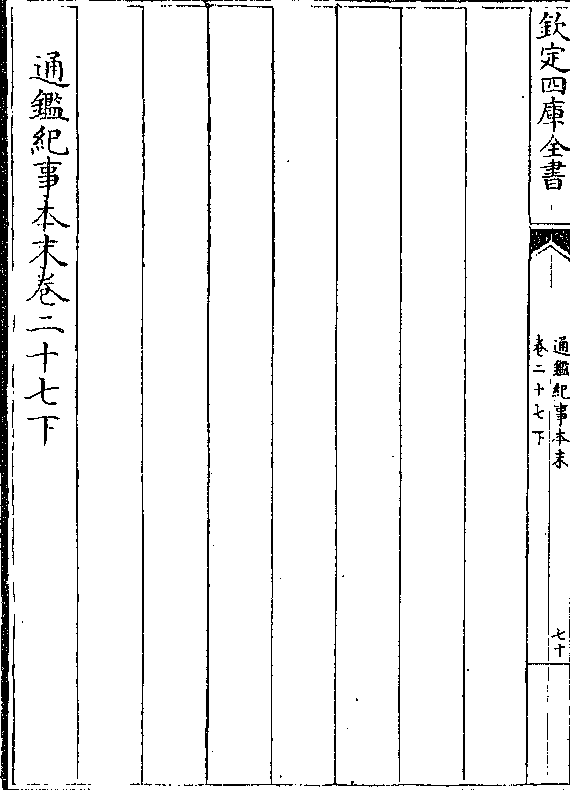 欽定四庫全書
通鑑紀事本末
卷二十七下
七十
通鑑紀事本末卷二十七下